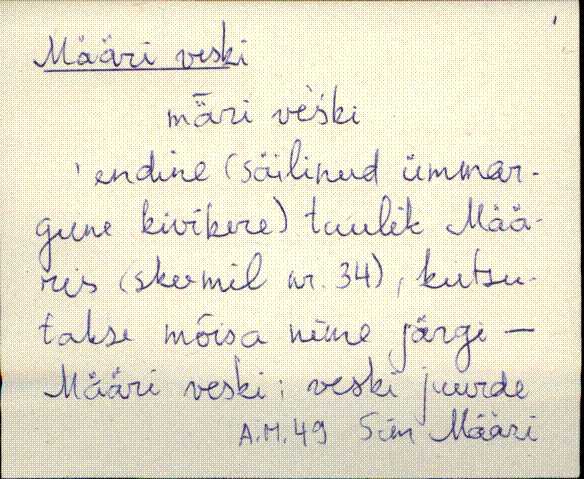 Määri veski
mǟri ve̮ški
'endine (säilinud ümmar-
gune kivikere) tuulik Mää-
ris (skeemil nr. 34), kutsu-
takse mõisa nime järgi —
Määri veski; veski juurde
A.M. 49 Sim Määri